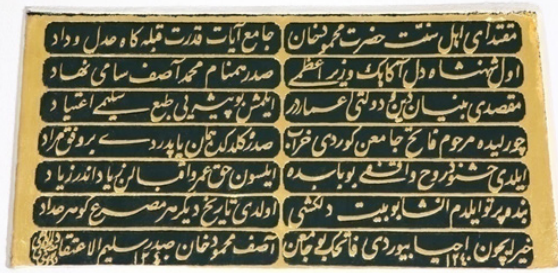 مقتدای اهل سنت حضرت محمود خان جامع آیات قدرت قبله كاه عدل و داد
اول شهنشاه دل آكاهك وزیر اعظمی صدر همنام محمد آصف سامی نهاد
مقصدی بنیان دین و دولتی اعماردر ایلمش بو پیشه یی طبع سلیمی اعتیاد
چورلیده مرحوم فاتح جامعن كوردی خراب صدر كلدكده همان یاپدردی بر وفق مراد
ایلدی خشنود روح واقفی بو بابده ایلسون حق عمر و اقبالن زیاد اندر زیاد
بنده پرتو ایلدم انشا بو بیت دلكشی اولدی تاریخ دیكر هر مصرع كوهر
خیر ایچون احیا بیوردی فاتحك بو ١٢٤٠ آصف محمود خان صدر سلیم الاعتقاد ١٢٤٠